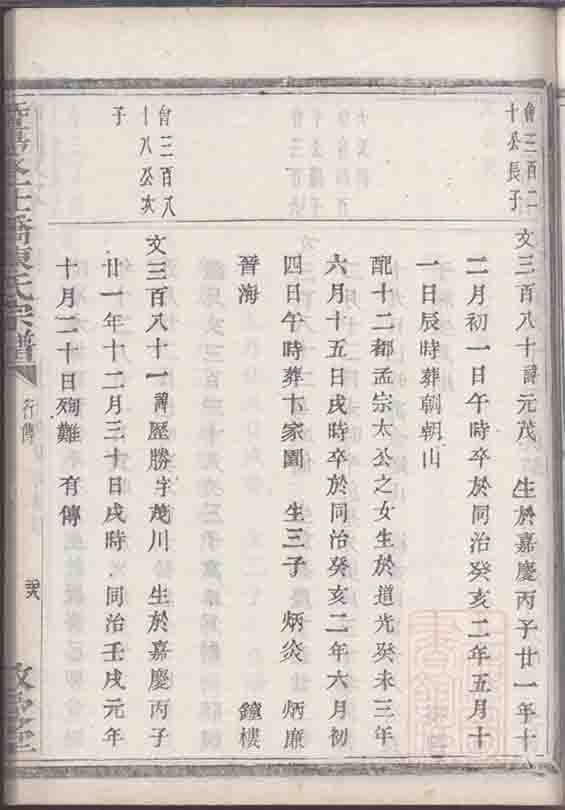 會三百二
十公長子
文三百八十諱元茂 生於嘉慶丙子廿一年十
二月初一日午時卒於同治癸亥二年五月十
一日辰時葬朝山
配十二都孟宗太公之女生於道光癸未三年
六月十五日戌時卒於同治癸亥二年六月初
四日午時葬卞家園 生三子 炳炎 炳廉
晉海 鐘樓
會三百八
十八公次
子
文三百八十一諱歷勝字茂川 生於嘉慶丙子
廿一年十二月三十日戌時 同治壬戌元年
十月二十日殉難 有傳
橋陳氏宗譜
行傳